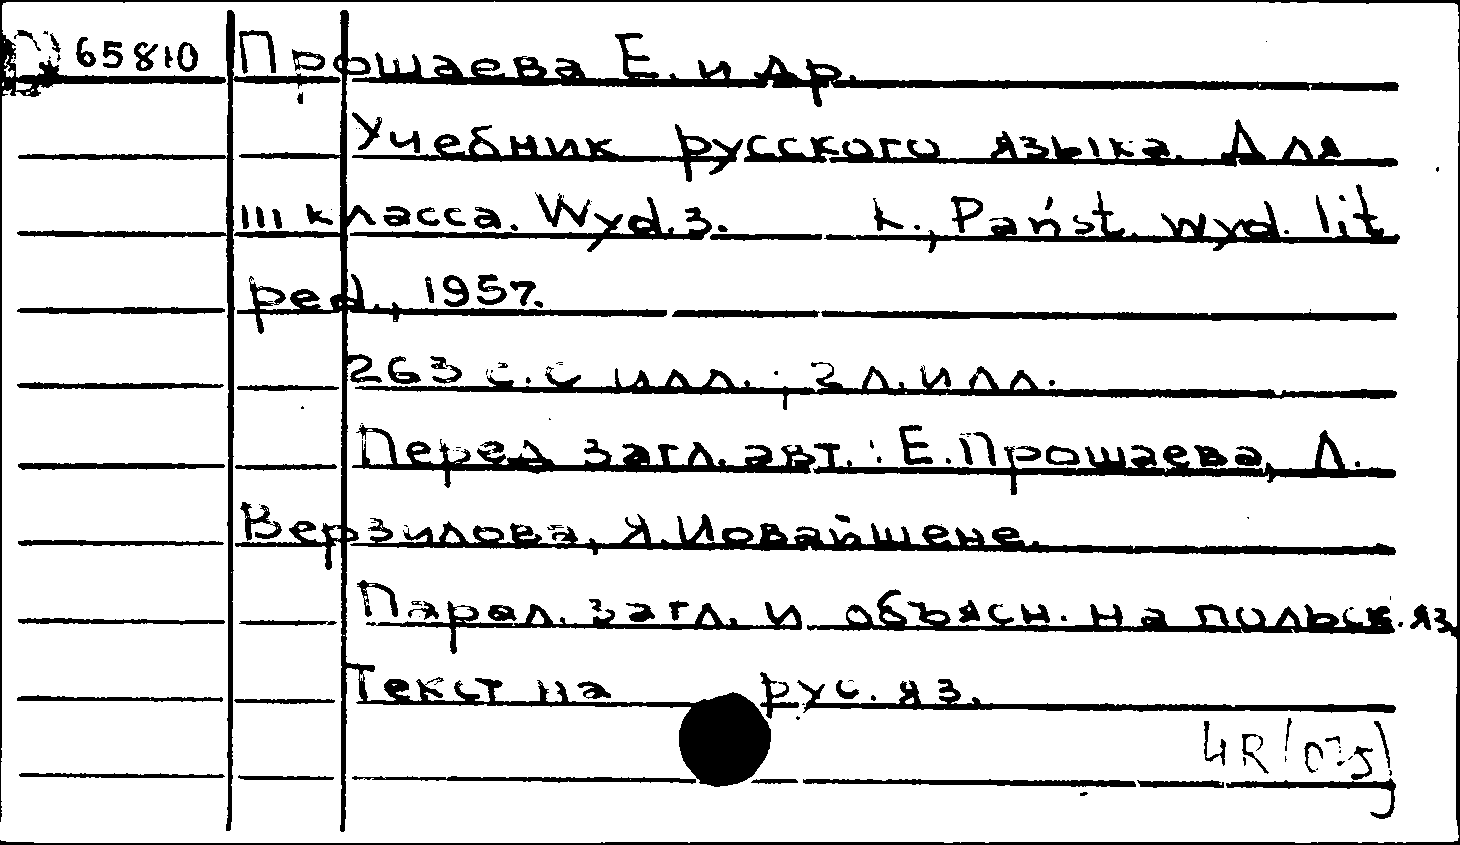 65810 Прошаева Е. и др.
Учебник русского языка. Для
III класса. Wyd. 3. К., Państ. wyd. lit
ped., 1957.
263 с. с илл.; 2 л. илл.
Перед загл. авт.: Е. Прошаева, Л.
Верзилова, Я. Иовайшене.
Парал. загл. и объясн. на польск. яз.
Текст на рус. яз.
4R(075)